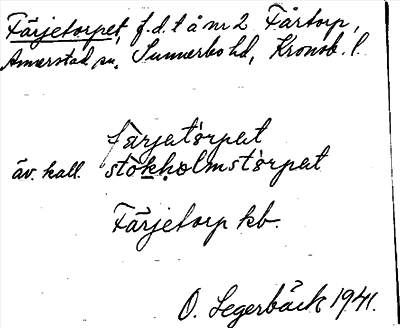 Färjetorpet, f.d. t å nr 2 Fårtorp,
Annerstad sn. Sunnerbo hd, Kronob. l.
färjatårpat
äv. kall. stòkholmstårpat
Färjetorp kb.
O. Segerbäck 1941.